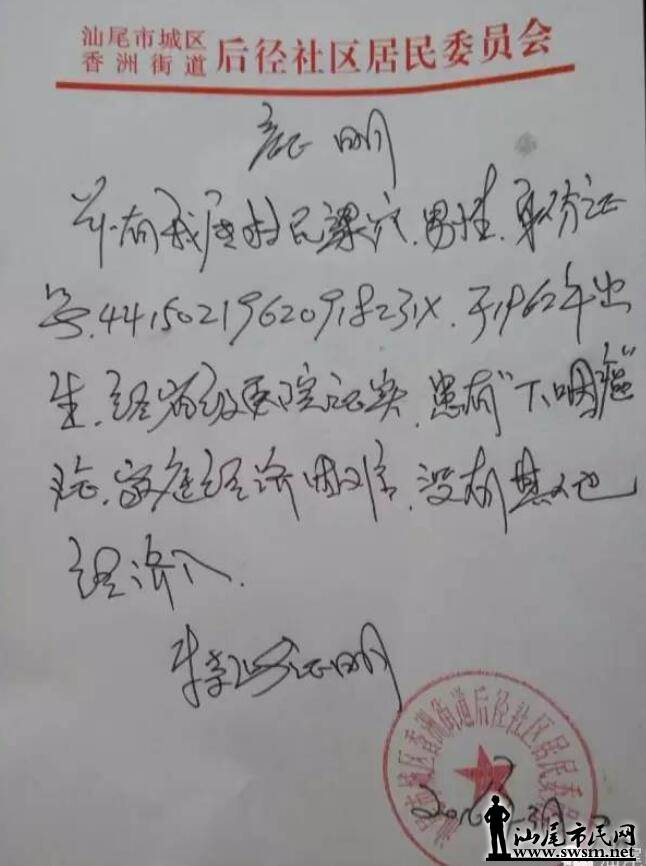 汕尾市城区
香洲街道 后径社区居民委员会
证明
兹有我居村民梁宾,男性,身份证
号,44150219620918231X,于1962年出
生,经省级医院证实,患有"下咽癌"
症,家庭经济困难,没有其他
经济入.
特此证明
汕尾市城区香洲街道后径社区居民委员会
汕尾市民网
www.swsm.net